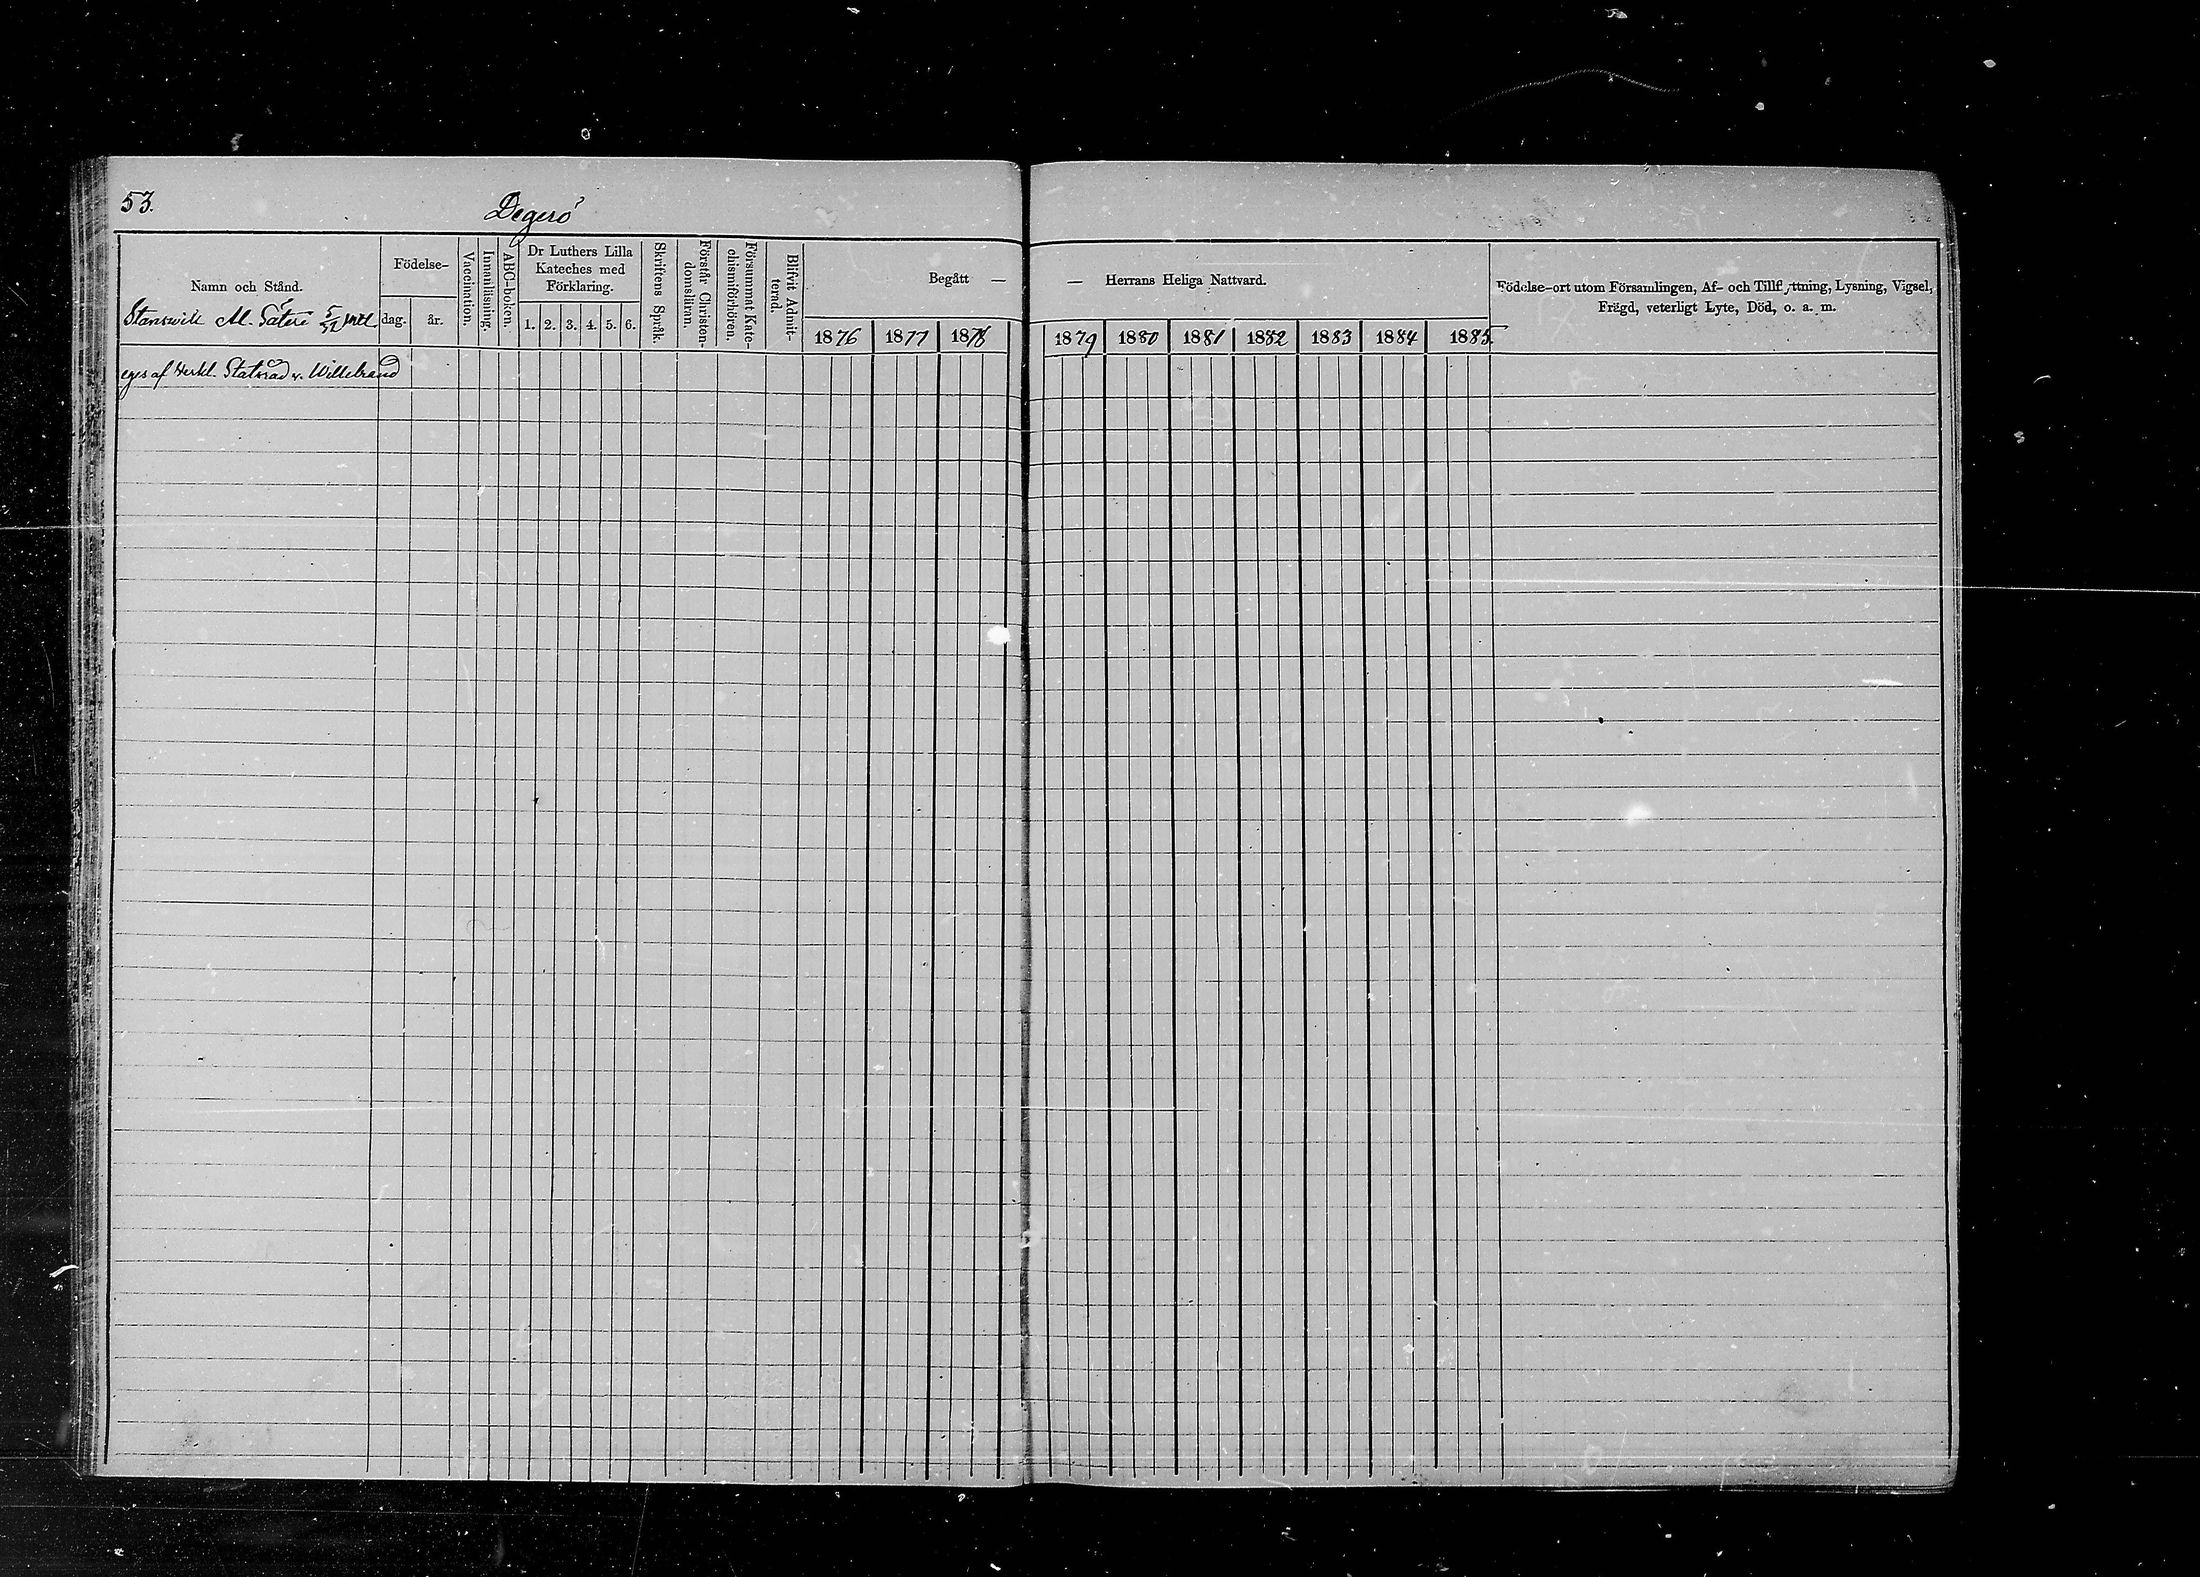 53.
Degerö
Namn och Stånd.
Stansvik Al. Säteri 5/32 mtl
Födelse-
dag.
år.
Vaccination.
Innanläsning.
ABC-boken.
Dr Luthers Lilla
Kateches med
Förklaring.
1. 2. 3. 4. 5. 6.
Skriftens Språk.
Förstår Christen-
domsläran.
Försummat Kate-
chismiförhören.
Blifvit Admit-
terad.
Begått —
1876 1877 1878
— Herrans Heliga Nattvard.
1879 1880 1881 1882 1883 1884 1885
Födelse-ort utom Församlingen, Af- och Tillflyttning, Lysning, Vigsel,
Frägd, veterligt Lyte, Död, o. a. m.
eges af Verkl. Statsråd v. Willebrand